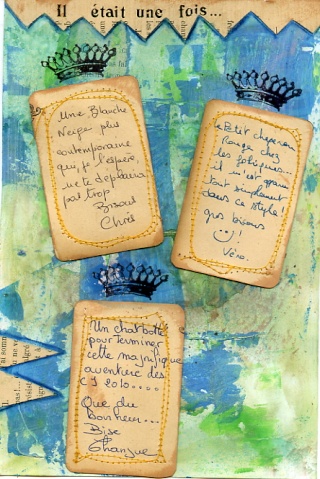 Il était une fois...
Une Blanche
Neige plus
contemporaine
qui, je l'espère,
ne te déplaira
pas trop
Bisous
Chris
Le Petit chaperon
Rouge chez
les
il m'est apparu
tout simplement
dans ce style!
gros bisous
!
Véro.
Un chat botté
pour terminer
cette magnifique
aventure des
2010....
Que du
bonheur...
Bise